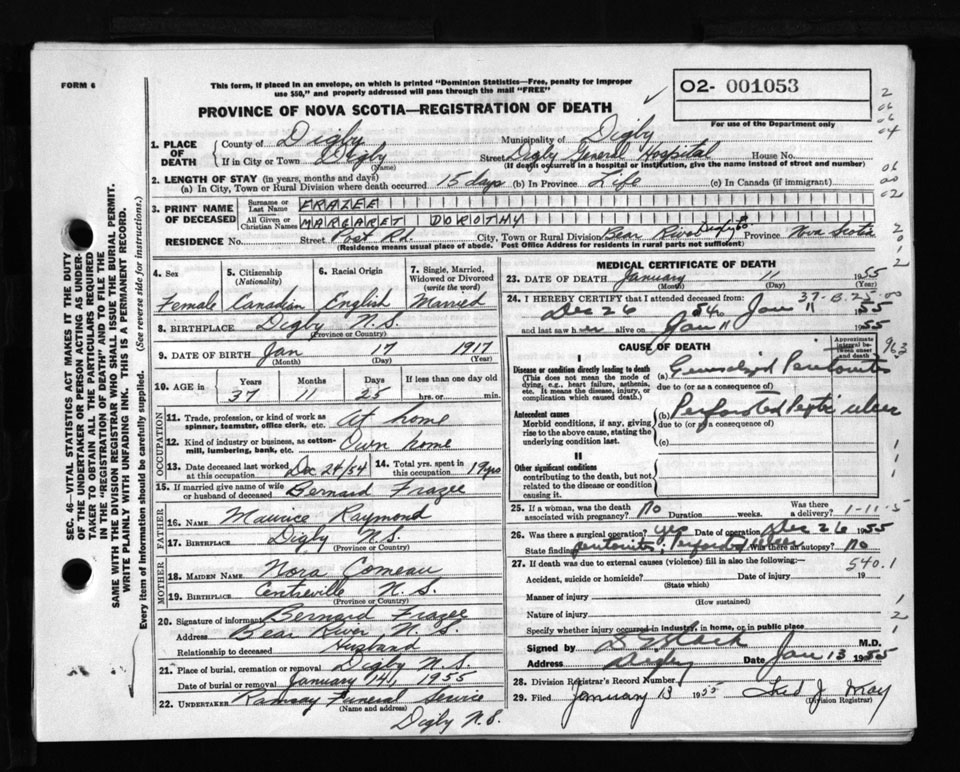 FORM 6
This form, if placed in an envelope, on which is printed "Dominion Statistics—Free, penalty for improper
use $50," and properly addressed will pass through the mail "FREE"
PROVINCE OF NOVA SCOTIA—REGISTRATION OF DEATH
O2- 001053
For use of the Department only
2
06
06
04
06
00
02
2
0
1
2
SEC. 46—VITAL STATISTICS ACT MAKES IT THE DUTY
OF THE UNDERTAKER OR PERSON ACTING AS UNDER-
TAKER TO OBTAIN ALL THE PARTICULARS REQUIRED
IN THE "REGISTRATION OF DEATH" AND TO FILE THE
SAME WITH THE DIVISION REGISTRAR WHO SHALL ISSUE THE BURIAL PERMIT.
WRITE PLAINLY WITH UNFADING INK. THIS IS A PERMANENT RECORD.
Every item of Information should be carefully supplied. (See reverse ride for instructions.)
1. PLACE OF DEATH
County of Digby Municipality of Digby
If in City or Town Digby Street Digby General Hospital House No.
(Name) (If death occurred in a hospital or institution, give the name instead of street and number)
2. LENGTH OF STAY (in years, months and days)
(a) In City, Town or Rural Division where death occurred 15 days (b) In Province Life (c) In Canada (if immigrant)
3. PRINT NAME OF DECEASED
Surname or Last Name FRAZEE
All Given or Christian Names MARGARET DOROTHY
RESIDENCE No. Street Post Rd. City, Town or Rural Division Bear River Digby Co Province Nova Scotia
(Residence means usual place of abode. Post Office Address for residents in rural parts not sufficient)
4. Sex Female
5. Citizenship (Nationality) Canadian
6. Racial Origin English
7. Single, Married, Widowed or Divorced (write the word) Married
8. BIRTHPLACE Digby N.S.
(Province or Country)
9. DATE OF BIRTH Jan 17 1917
(Month) (Day) (Year)
10. AGE in Years Months Days If less than one day old
37 11 25 hrs. or min.
OCCUPATION
11. Trade, profession, or kind of work as
spinner, teamster, office clerk, etc. At home
12. Kind of industry or business, as cotton-
mill, lumbering, bank, etc. Own home
13. Date deceased last worked at this occupation Dec 24/54
14. Total yrs. spent in this occupation 19 yrs
15. If married give name of wife
or husband of deceased Bernard Frazee
FATHER
16. NAME Maurice Raymond
17. BIRTHPLACE Digby N.S.
(Province or Country)
MOTHER
18. MAIDEN NAME Nora Comeau
19. BIRTHPLACE Centreville N.S.
(Province or Country)
20. Signature of informant Bernard Frazee
Address Bear River N.S.
Relationship to deceased Husband
21. Place of burial, cremation or removal Digby N.S.
Date of burial or removal January 14, 1955
22. UNDERTAKER Ramsay Funeral Service
(Name and address)
Digby N.S.
MEDICAL CERTIFICATE OF DEATH
23. DATE OF DEATH January 11 1955
(Month) (Day) (Year)
37-B.25-00
24. I HEREBY CERTIFY that I attended deceased from:
Dec 26 1954 to Jan 11 1955
and last saw her alive on Jan 11 1955
CAUSE OF DEATH
Approximate interval between onset and death
963
I
Disease or condition directly leading to death
(This does not mean the mode of
dying, e.g., heart failure, asthenia,
etc. It means the disease, injury, or
complication which caused death.)
(a) Generalized Peritonitis
due to (or as a consequence of)
Antecedent causes
Morbid conditions, if any, giving
rise to the above cause, stating the
underlying condition last.
(b) Perforated Peptic ulcer
due to (or as a consequence of)
(c)
II
Other significant conditions
contributing to the death, but not
related to the disease or condition
causing it.
1
1
25. If a woman, was the death
associated with pregnancy? no Duration weeks. Was there a delivery? 1-11-5
26. Was there a surgical operation? yes Date of operation Dec 26 1955
State findings Peritonitis; Perforated Ulcer Was there an autopsy? no
27. If death was due to external causes (violence) fill in also the following: 540.1
Accident, suicide or homicide? Date of injury 19
(State which)
Manner of injury
(How sustained)
Nature of injury
Specify whether injury occurred in industry, in home, or in public place
1
2
1
Signed by M.D.
Address Digby Date Jan 13 1955
28. Division Registrar's Record Number
29. Filed January 13 1955 Fred J. May
(Division Registrar)